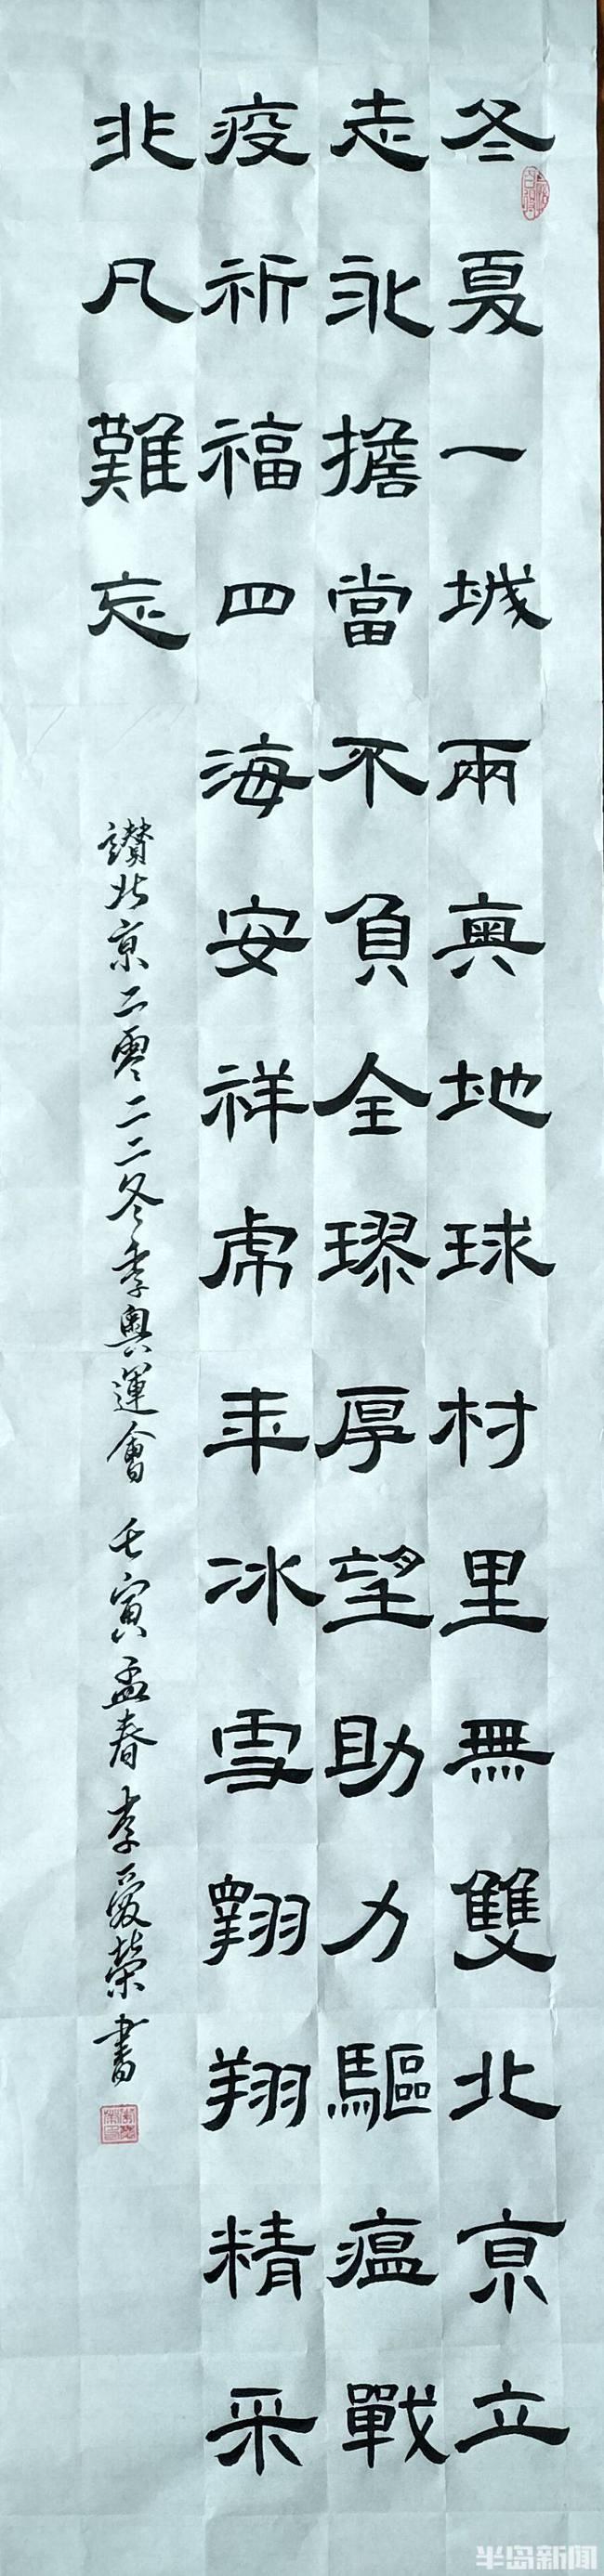 冬夏一城兩奧地球村里無雙北京立
志永擔當不負全璆厚望助力驅瘟戰
疫祈福四海安祥虎年冰雪翱翔精采
非凡難忘
讚北京二零二二冬季奧運會 壬寅孟春李愛榮書
半岛新闻